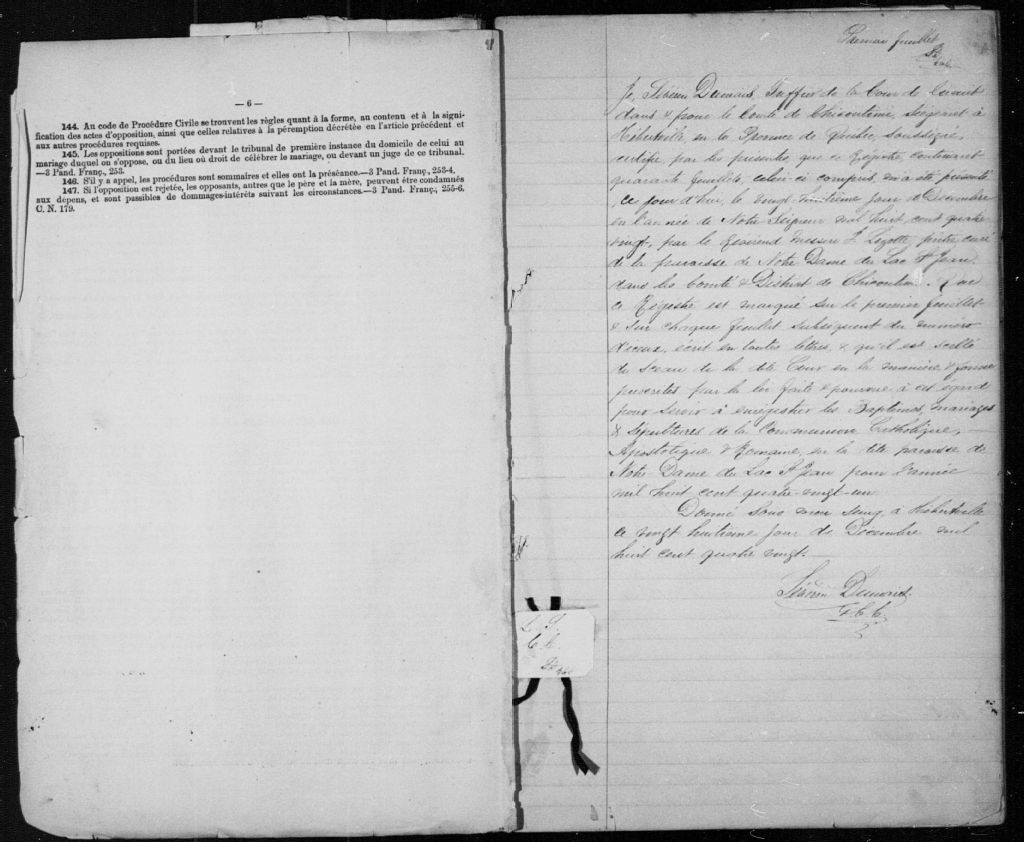 — 6 —
144. Au code de Procédure Civile se trouvent les règles quant à la forme, au contenu et à la signi-
fication des actes d'opposition, ainsi que celles relatives à la péremption décrétée en l'article précédent et
aux autres procédures requises.
145. Les oppositions sont portées devant le tribunal de première instance du domicile de celui au
mariage duquel on s'oppose, ou du lieu où droit de célébrer le mariage, ou devant un juge de ce tribunal.
—3 Pand. Franç., 253.
146. S'il y a appel, les procédures sont sommaires et elles ont la préséance.—3 Pand. Franç., 253-4.
147. Si l'opposition est rejetée, les opposants, autres que le père et la mère, peuvent être condamnés
aux dépens, et sont passibles de dommages-intérêts suivant les circonstances.—3 Pand. Franç., 255-6.
C. N. 179.
Premier feuillet
Je, Sévérin Dumais, Greffier de la Cour de Circuit
dans & pour le Comté de Chicoutimi, siégeant à
Hébertville en la Province de Québec, soussigné,
certifie par les présentes, que ce Régistre, contenant
quarante feuillets, celui-ci compris, m'a été présenté
ce jour d'hui, le vingt-huitième jour de Décembre
en l'année de Notre Seigneur mil huit cent quatre
vingt, par le Révérend Messire J. Lizotte, prêtre curé
de la paroisse de Notre Dame du Lac St Jean,
dans les Comté & District de Chicoutimi. Que
ce Régistre est marqué sur le premier feuillet
& sur chaque feuillet subséquent du numéro
d'iceux, écrit en toutes lettres, & qu'il est scellé
du Sceau de la dite Cour en la manière & forme
prescrites par la loi faite & pourvue à cet égard
pour servir à enrégistrer les Baptêmes, mariages
& Sépultures de la Communion Catholique,
Apostolique & Romaine, en la dite paroisse de
Notre-Dame du Lac St Jean pour l'année
mil huit cent quatre-vingt-un.
Donné sous mon seing, à Hébertville
ce vingt huitième jour de Décembre mil
huit cent quatre vingt.
Sévérin Dumais
G.C.C.